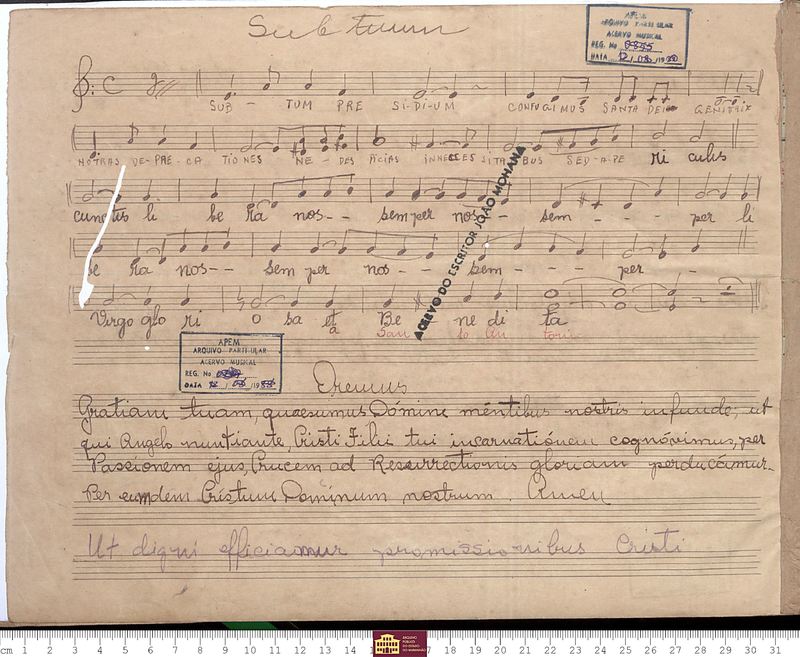 Sub tuum
APEM
ARQUIVO PARTICULAR
ACERVO MUSICAL
REG. No 0855
DATA 12 / 08 / 19
SUB - TUM PRE SI-DI-UM CONFUGIMUS SANTA DEI GENITRIX
NOTRAS DE-PRE-CA TIONES NE-DES PICIAS INNECES SITA BUS SED-A-PE ri culis
cunctis li be ra nos-- semper nos-- sem - - - per li
be ra nos-- sem per nos-- sem - - - per - -
Virgo glo ri o sa et Be - ne di ta
a San to An toni
ACERVO DO ESCRITOR JOÃO MOHANA
APEM
ARQUIVO PARTICULAR
ACERVO MUSICAL
REG. No
DATA 12 / 08 / 19
Oremus
Gratiam tuam, quaesumus Dómine méntibus nostris infunde; ut
qui Angelo nuntiante, Cristi Filii tui incarnatiónem cognóvimus, per
Passionem ejus, Crucem ad Resurrectionis gloriam perducámur.
Per eumdem Cristum Dominum nostrum. Amen
Ut digni efficiamur promissionibus Cristi
cm 1 2 3 4 5 6 7 8 9 10 11 12 13 14 17 18 19 20 21 22 23 24 25 26 27 28 29 30 31
ARQUIVO
PÚBLICO
DO ESTADO
DO MARANHÃO